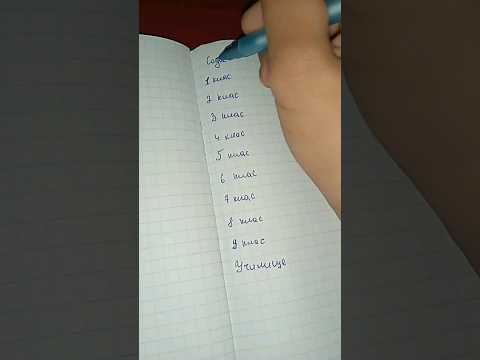 1 клас
2 клас
3 клас
4 клас
5 клас
6 клас
7 клас
8 клас
9 клас
Училище